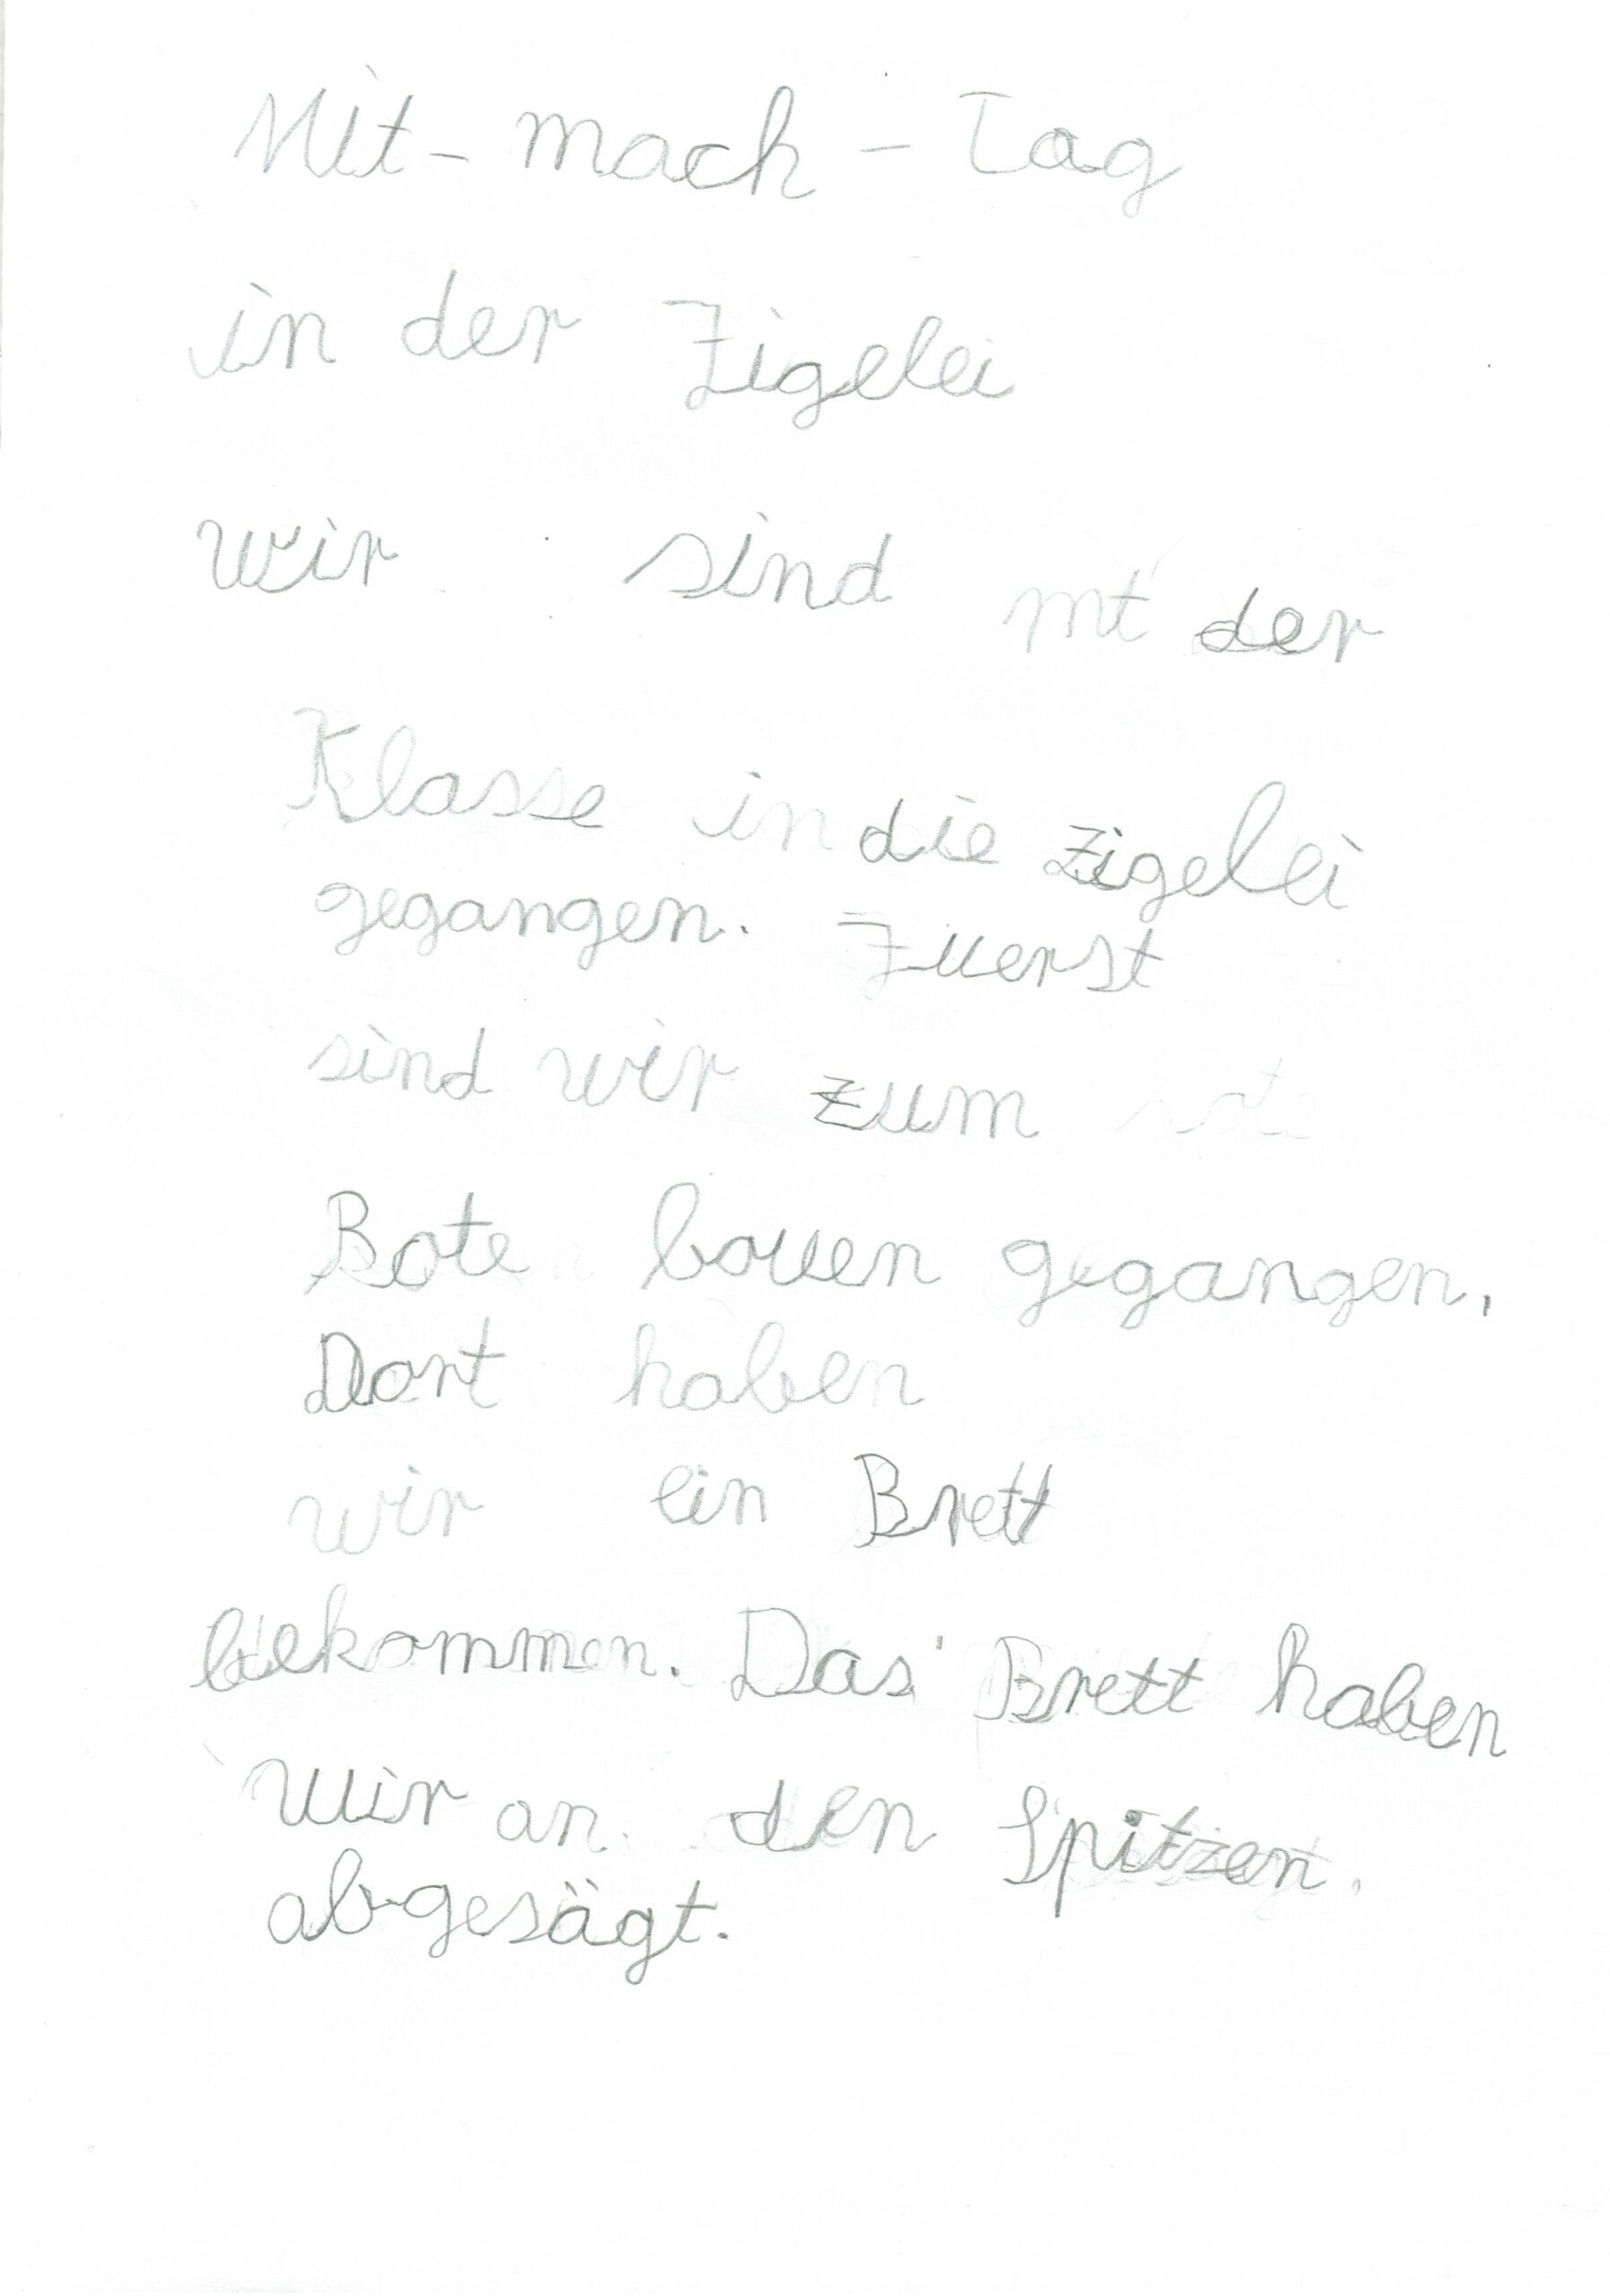 Mit-mach-Tag
in der Zigelei
wir sind mt der
Klasse in die Zigelei
gegangen. Zuerst
sind wir zum
Bote bauen gegangen.
Dort haben
wir ein Brett
bekommen. Das Brett haben
wir an den Spitzen.
abgesägt.